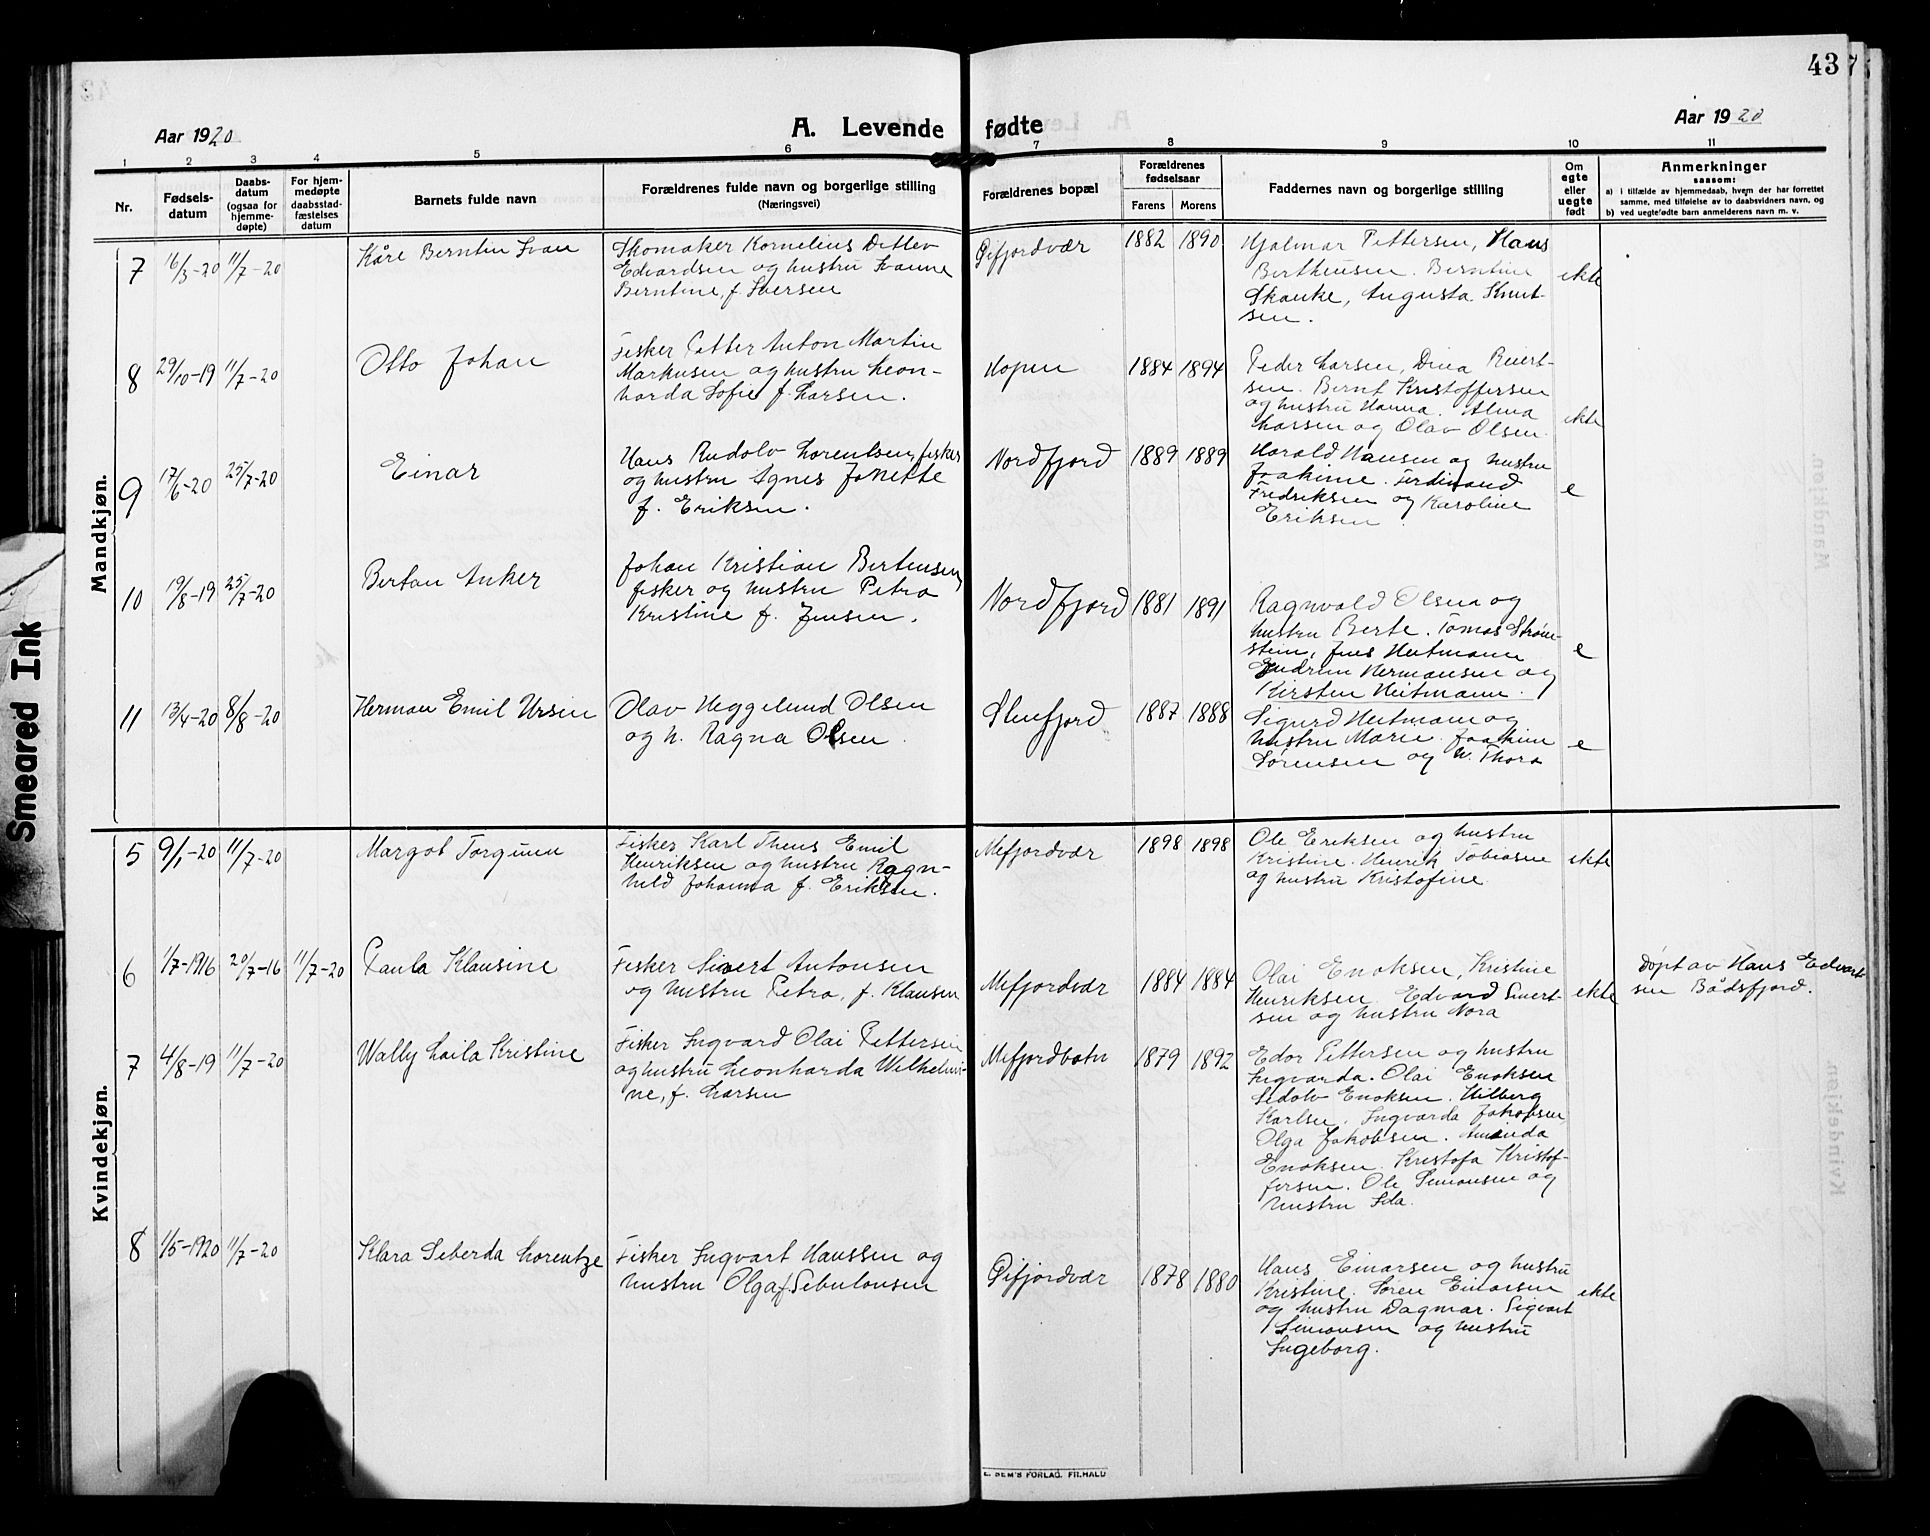 43
Aar 1920
A. Levende fødte
Aar 1920
1 2 3 4 5 6 7 8 9 10 11
Nr.
Fødsels-
datum
Daabs-
datum
(ogsaa for
hjemme-
døpte)
For hjem-
medøpte
daabsstad-
fæstelses
datum
Barnets fulde navn
Forældrenes fulde navn og borgerlige stilling
(Næringsvei)
Forældrenes bopæl
Forældrenes
fødselsaar
Farens Morens
Faddernes navn og borgerlige stilling
Om
egte
eller
uegte
født
Anmerkninger
saasom:
a) i tilfælde av hjemmedaab, hvem der har forrettet
samme, med tilføielse av to daabsvidners navn, og
b) ved uegtefødte barn anmelderens navn m. v.
Mandkjøn.
7 16/3-20 11/7-20
Kåre Berntin Ivan
Skomaker Kornelius Ditlev
Edvardsen og hustru Ivanne
Berntine, f. Iversen
Øifjordvær 1882 1890
Hjalmar Pettersen, Hans
Bertheusen. Berntine
Skanke, Augusta Knut-
sen.
ekte
8 29/10-19 11/7-20
Otto Johan
Fisker Petter Anton Martin
Markusen og hustru Leon-
harda Sofie f. Larsen.
Hopen 1884 1894
Peder Larsen, Dina Reiert-
sen. Bernt Kristoffersen
og hustru Hanna. Alma
Larsen og Olav Olsen
ekte
9 17/6-20 25/7-20
Einar
Hans Rudolv Lorentsen, fisker
og hustru Agnes Jonette
f. Eriksen.
Nordfjord 1889 1889
Harald Hansen og hustru
Joakime. Ferdinand
Fredriksen og Karoline
Eriksen.
e
10 19/8-19 25/7-20
Bertan Anker
Johan Kristian Bertensen,
fisker og hustru Petra
Kristine f. Jensen.
Nordfjord 1881 1891
Ragnvald Olsen og
hustru Berte. Tomas Strøm-
stein, Jens Heitmann
Gudrun Hermansen og
Kirsten Heitmann.
e
11 13/4-20 8/8-20
Herman Emil Ursin
Olav Heggelund Olsen
og h. Ragna Olsen
Stenfjord 1887 1888
Sigurd Heitmann og
hustru Marie. Joakim
Sørensen og h. Thora
e
Kvindekjøn.
5 9/1-20 11/7-20
Margot Torgunn
Fisker Karl Thens Emil
Henriksen og hustru Ragn-
hild Johanna f. Eriksen.
Mefjordvær 1898 1898
Ole Eriksen og hustru
Kristine. Henrik Tobiasne
og hustru Kristofine
ekte
6 1/7-1916 20/7-16 11/7-20
Paula Klausine
Fisker Sivert Antonsen
og hustru Petra, f. Klausen
Mefjordvær 1884 1884
Olai Enoksen, Kristine
Henriksen Edvard Sivert-
sen og hustru Nora
ekte
døpt av Hans Edvart-
sen Bådsfjord.
7 4/8-19 11/7-20
Wally Laila Kristine
Fisker Ingvard Olai Pettersen
og hustru Leonharda Wilhelmi-
ne, f. Larsen
Mefjordbotn 1879 1892
Edor Pettersen og hustru
Ingvarda. Olai Enoksen
Sedolv Enoksen. Hilberg
Karlsen. Ingvarda Jakobsen
Olga Jakobsen. Aminda
Enoksen. Kristofa Kristof-
fersen. Ole Simonsen og
hustru Ida.
8 1/5-1920 11/7-20
Klara Seberda Lorentze
Fisker Ingvart Hanssen og
hustru Olga f. Sebulonsen
Øifjordvær 1878 1880
Hans Einarsen og hustru
Kristine. Søren Einarsen
og hustru Dagmar. Sigvart
Simonsen og hustru
Ingeborg.
ekte
E. SEM'S FORLAG. FR.HALD
Smeared Ink